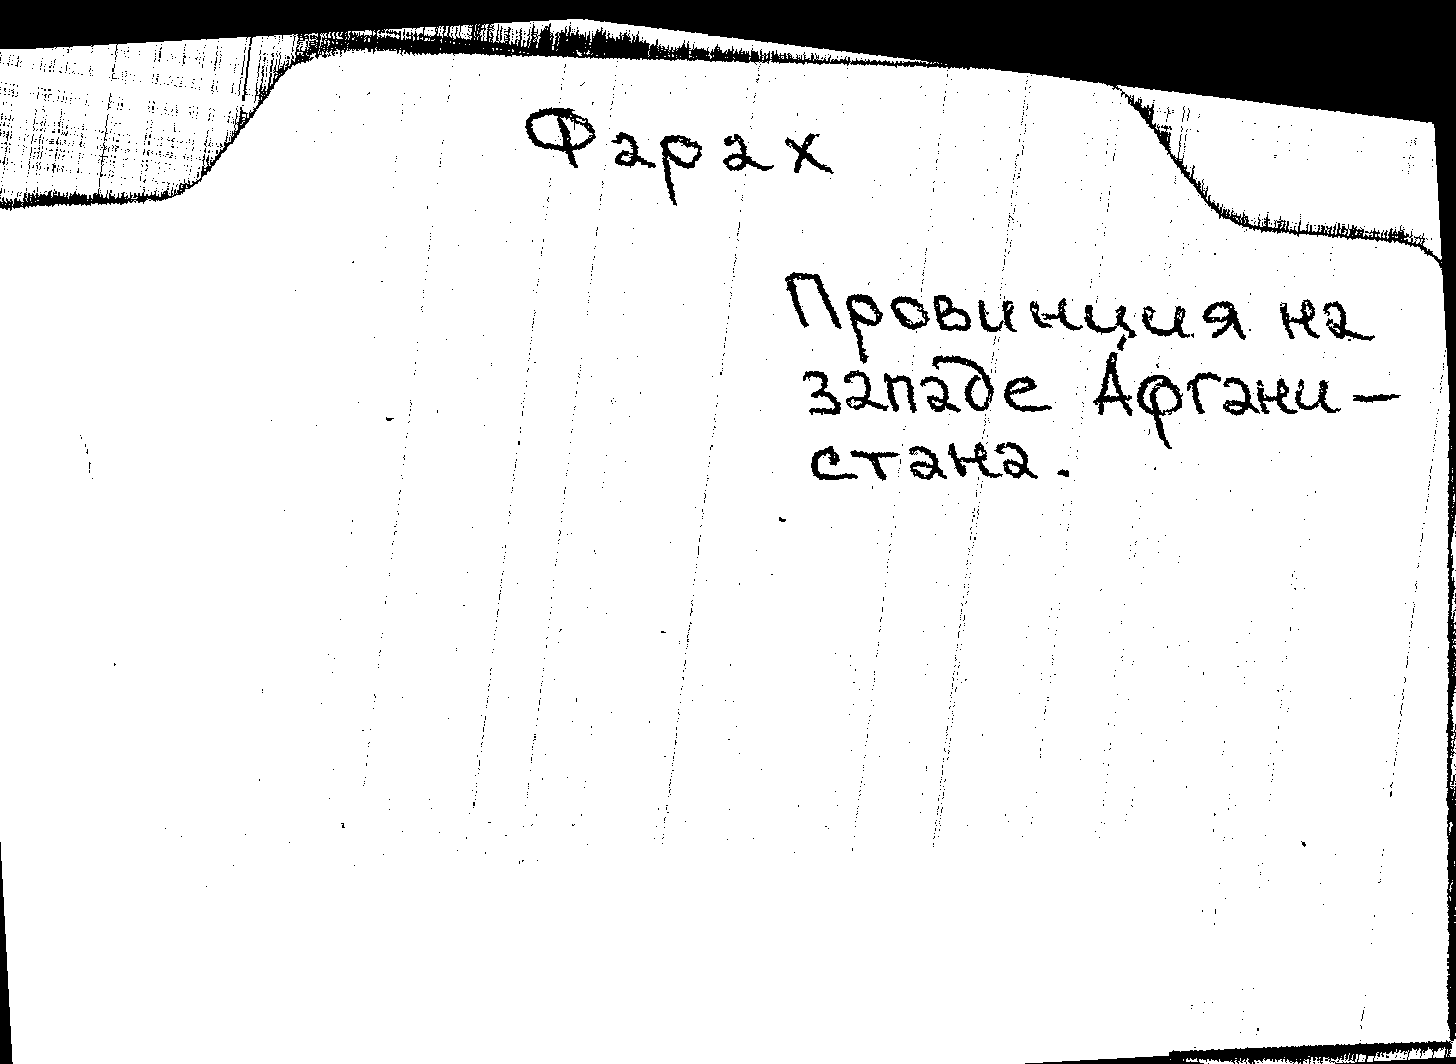 Фарах
Провинция на
западе Афгани-
стана.